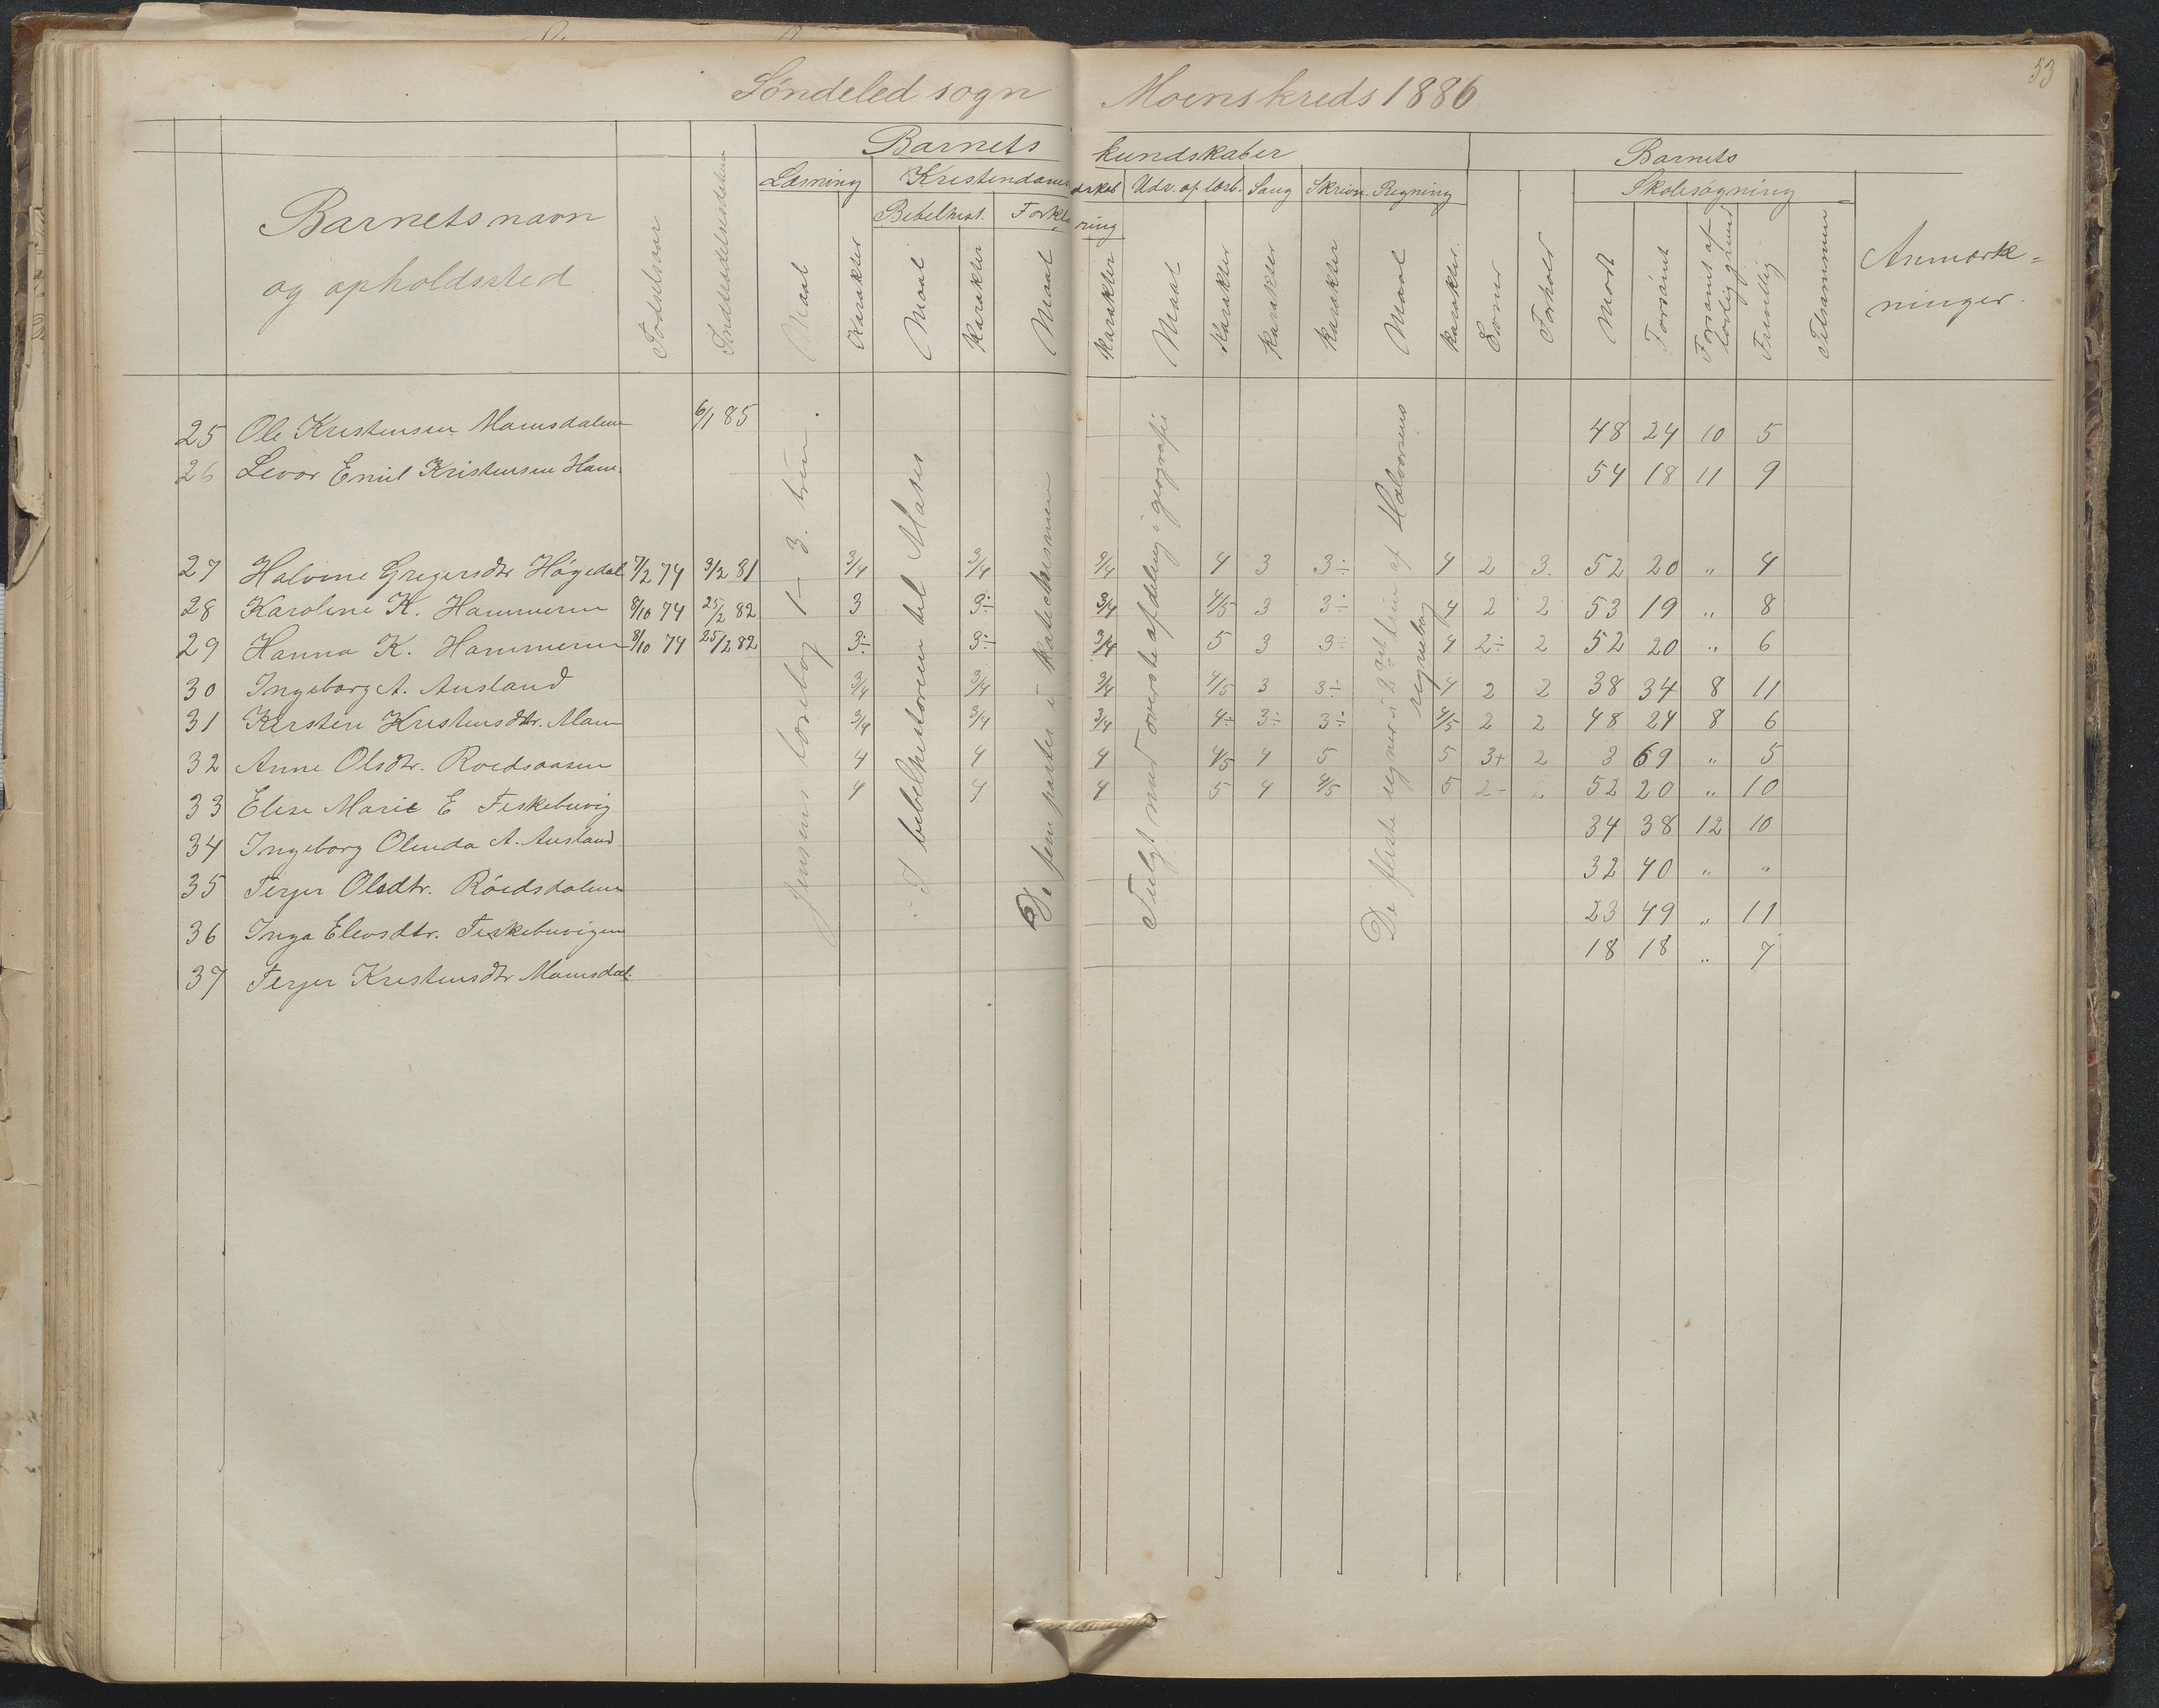 53
Söndeled sogn Moens kreds 1886
Barnets kundskaber Barnets
Læsning Kristendomskundskab Udv. af læseb. Sang Skrivn. Regning Skolesøgning
Bibelhist. Forklaring
Barnets navn og opholdssted Fødselsaar Indtrædelsesdatum Maal Karakter Maal Karakter Maal Karakter Maal Karakter Karakter Karakter Maal Karakter Evner Forhold Mødt Forsømt Forsømt af lovlig grund Frivillig Tilsammen Anmærkninger.
25 Ole Kristensen Mamsdalen 6/1 85 48 24 10 5
26 Levor Emil Kristensen Ham. 54 18 11 9
27 Halvine Gregersdtr Høgedal 7/2 74 3/2 81 3/4 3/4 3/4 4 3 3÷ 4 2 3. 52 20 " 4
28 Karoline K. Hammeren 8/10 74 25/2 82 3 3÷ 3/4 4/5 3 3÷ 4 2 2 53 19 " 8
29 Hanna K. Hammeren 8/10 74 25/2 82 3÷ 3÷ 3/4 5 3 3÷ 4 2÷ 2 52 20 " 6
30 Ingeborg A. Ausland 3/4 3/4 3/4 4/5 3 3÷ 4 2 2 38 34 8 11
31 Kersten Kristensdtr. Mam 3/4 3/4 3/4 4÷ 3÷ 3÷ 4/5 2 2 48 24 8 6
32 Anne Olsdtr. Roedsaasen 4 4 4 4/5 4 5 5 3+ 2 3 69 " 5
33 Elise Marie E Fiskebuvig 4 4 4 5 4 4/5 5 2- 52 20 " 10
34 Ingeborg Olinda A. Ausland 34 38 12 10
35 Terjer Olsdtr. Röedsdalen 32 40 " "
36 Inga Elevsdtr. Fiskebuvigen 23 49 " 11
37 Terjer Kristensdtr Mamsdal. 18 18 " 7
Jensens læsebog 1– 3. trin.
I bibelhistorien til Moses
De fem parter i katechismen
Fulgt med øverste afdeling i geografie
De fleste regner i 2det trin af Halvorsens
regnebog